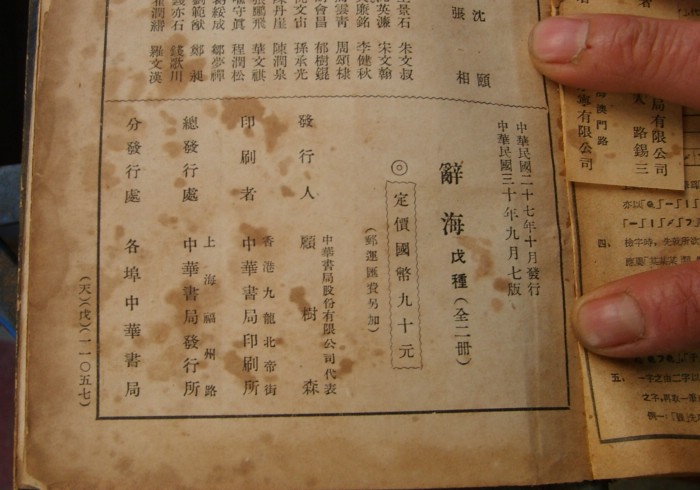 沈頤
張相
景石 朱文叔
英濂 宋文翰
廉銘 李健秋
雲青 周頌棣
會昌 郁樹錕
文宙 孫承光
丹崖 陳潤泉
鵬飛 華文祺
守眞 程潤松
綏成 鄒夢禪
範猷 鄭昶
亦石 錢歌川
潤縉 羅文漢
中華民國二十七年十月發行
中華民國三十年九月七版
辭海戊種(全二冊)
◎定價國幣九十元
(郵運匯費另加)
發行人 中華書局股份有限公司代表 顧樹森
印刷者 香港九龍北帝街 中華書局印刷所
總發行處 上海福州路 中華書局發行所
分發行處 各埠中華書局
(天)(戊)(一一〇五七)
局有限公司
人路錫三
澳門路
有限公司
亦以
四、檢字時,先
五、一字之
之字,
例一: